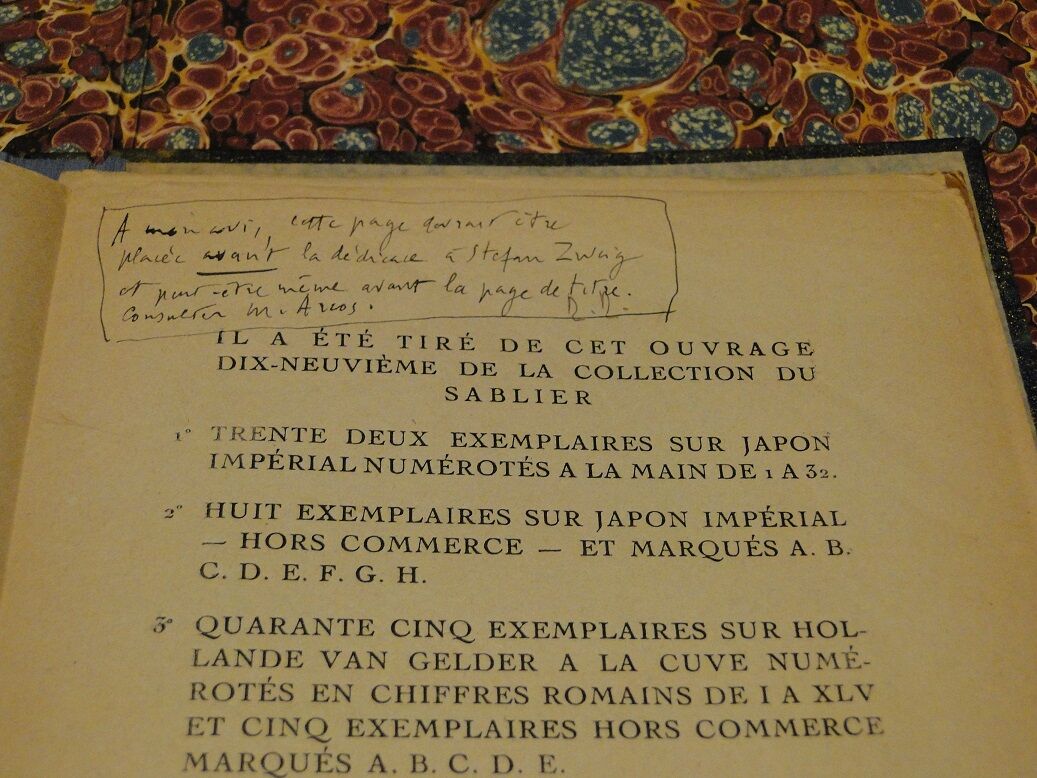 A mon avis, cette page devrait être
placée avant la dédicace à Stefan Zweig
et peut-être même avant la page de titre.
Consulter M. Arcos. R. R.
IL A ÉTÉ TIRÉ DE CET OUVRAGE
DIX-NEUVIÈME DE LA COLLECTION DU
SABLIER
1° TRENTE DEUX EXEMPLAIRES SUR JAPON
IMPÉRIAL NUMÉROTÉS A LA MAIN DE 1 A 32.
2° HUIT EXEMPLAIRES SUR JAPON IMPÉRIAL
— HORS COMMERCE — ET MARQUÉS A. B.
C. D. E. F. G. H.
3° QUARANTE CINQ EXEMPLAIRES SUR HOL-
LANDE VAN GELDER A LA CUVE NUMÉ-
ROTÉS EN CHIFFRES ROMAINS DE I A XLV
ET CINQ EXEMPLAIRES HORS COMMERCE
MARQUÉS A. B. C. D. E.